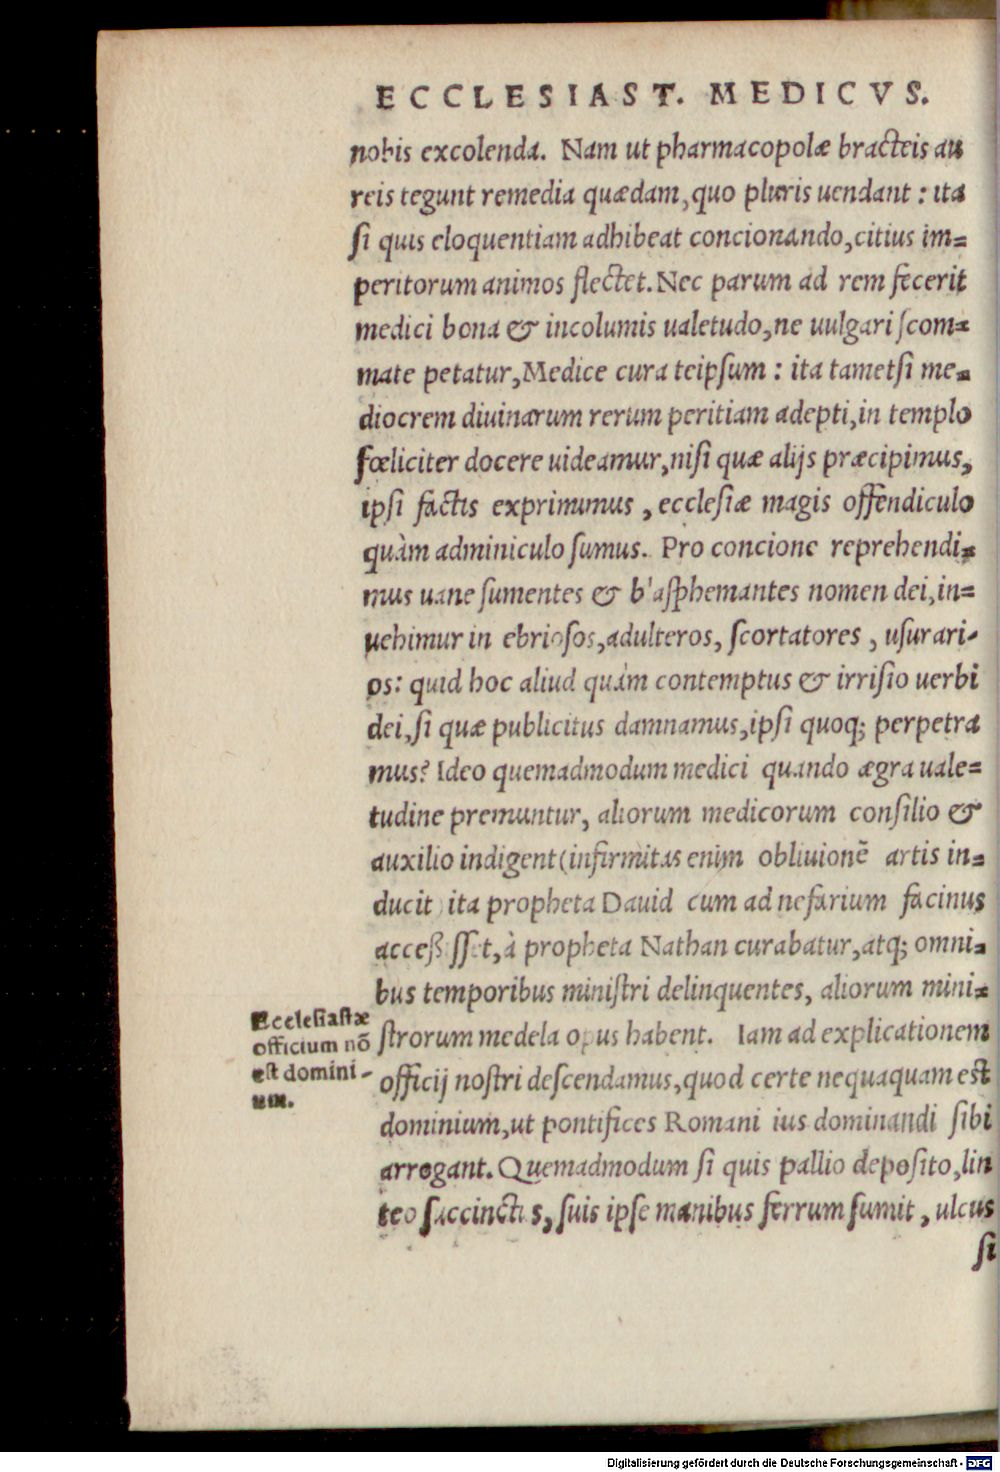 ECCLESIAST. MEDICVS.
nobis excolenda. Nam ut pharmacopolæ bracteis au
reis tegunt remedia quædam, quo pluris uendant: ita
si quis eloquentiam adhibeat concionando, citius im=
peritorum animos flectet. Nec parum ad rem fecerit
medici bona & incolumis ualetudo, ne uulgari scom=
mate petatur, Medice cura teipsum: ita tametsi me=
diocrem diuinarum rerum peritiam adepti, in templo
fœliciter docere uideamur, nisi quæ alijs præcipimus,
ipsi factis exprimimus, ecclesiæ magis offendiculo
quàm adminiculo sumus. Pro concione reprehendi=
mus uane sumentes & blasphemantes nomen dei, in=
uehimur in ebriosos, adulteros, scortatores, usurari-
os: quid hoc aliud quàm contemptus & irrisio uerbi
dei, si quæ publicitus damnamus, ipsi quoq; perpetra
mus? Ideo quemadmodum medici quando ægra uale=
tudine premuntur, aliorum medicorum consilio &
auxilio indigent (infirmitas enim obliuionē artis in=
ducit) ita propheta Dauid cum ad nefarium facinus
accessisset, à propheta Nathan curabatur, atq; omni=
bus temporibus ministri delinquentes, aliorum mini=
strorum medela opus habent. Iam ad explicationem
officij nostri descendamus, quod certe nequaquam est
dominium, ut pontifices Romani ius dominandi sibi
arrogant. Quemadmodum si quis pallio deposito, lin
teo succinctus, suis ipse manibus ferrum sumit, ulcus
si
Ecclesiastæ
officium nō
est domini-
um.
Digitalisierung gefördert durch die Deutsche Forschungsgemeinschaft - DFG